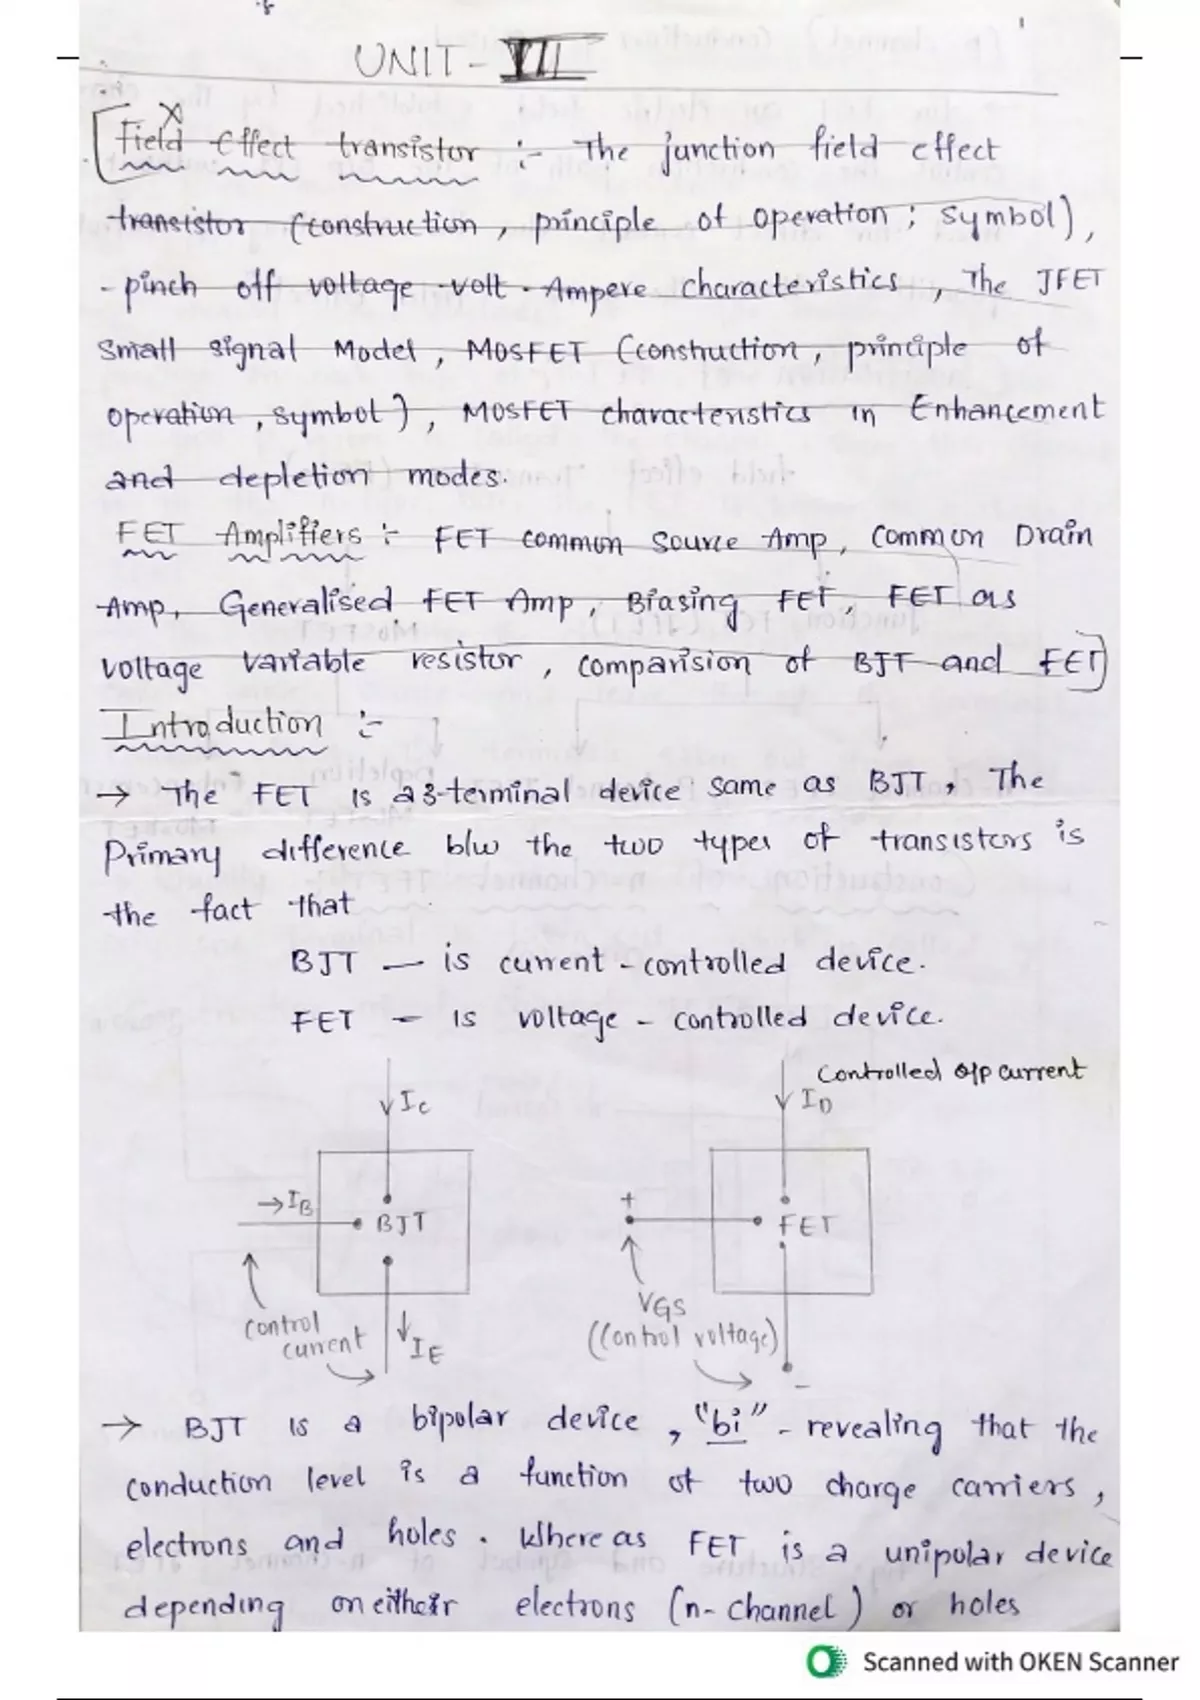 1
UNIT - VII
Field Effect transistor :- The junction field effect
transistor (construction, principle of operation; symbol),
- pinch off voltage - volt - Ampere characteristics, The JFET
Small signal Model, MOSFET (construction, principle of
operation, symbol), MOSFET characteristics in Enhancement
and depletion modes.
FET Amplifiers :- FET common source Amp, Common Drain
Amp, Generalised FET Amp, Biasing FET, FET as
voltage variable resistor, comparision of BJT and FET]
Introduction :-
→ The FET is a 3-terminal device same as BJT, The
Primary difference b/w the two types of transistors is
the fact that
BJT — is current - controlled device.
FET — is voltage - controlled device.
Controlled o/p current
IC
ID
→IB
BJT
+
FET
VGS
(Control voltage)
control
current
IE
-
→ BJT is a bipolar device, "bi" - revealing that the
conduction level is a function of two charge carriers,
electrons and holes. Where as FET is a unipolar device
depending on either electrons (n-channel) or holes
Scanned with OKEN Scanner